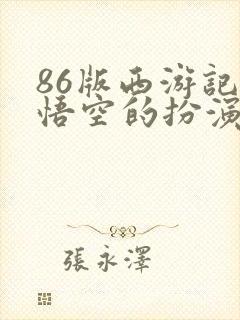 86版西游記
悟空的扮演
張永澤